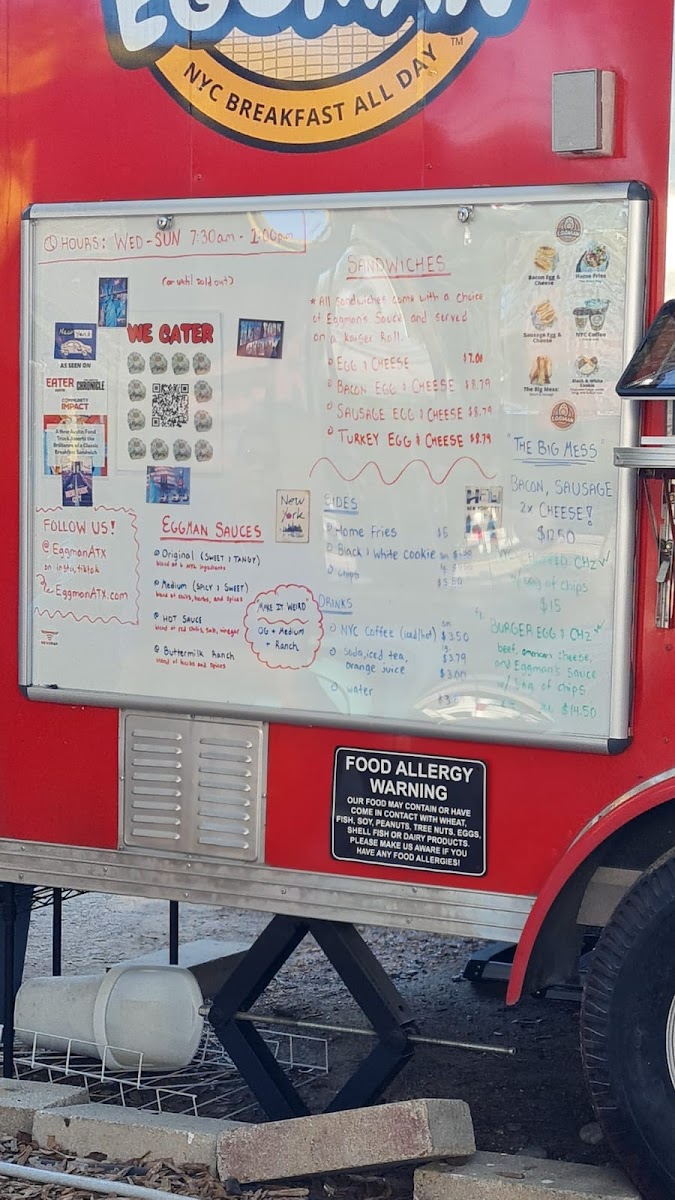 EGGMAN
NYC BREAKFAST ALL DAY
TM
HOURS: WED-SUN 7:30am -
(or until sold out)
WE CATER
New York
AS SEEN ON
EATER
CHRONICLE
COMMUNITY
IMPACT
A New Austin Food
Truck Asserts the
Brilliance of a Classic
Breakfast Sandwich
FOLLOW US!
@EggmanATX
on insta, tiktok
EggmanATX.com
EGGMAN SAUCES
Original (SWEET & TANGY)
Medium (SPICY & SWEET)
blend of chilis, herbs, and spices
HOT SAUCE
blend of red chilis, salt, vinegar
Buttermilk Ranch
blend of herbs and spices
"MAKE IT WEIRD"
OG + Medium
+ Ranch
New
York
SANDWICHES
* All sandwiches come with a choice
of Eggman's Sauce and served
on a Kaiser Roll.
EGG & CHEESE $7.00
BACON EGG & CHEESE $8.79
SAUSAGE EGG & CHEESE $8.79
TURKEY EGG & CHEESE $8.79
SIDES
Home Fries $5
Black & White Cookie
chips
DRINKS
NYC Coffee (iced/hot) sm $3.50
Soda, iced tea, $3.79
orange juice $3.00
water
EGGMAN
Bacon Egg &
Cheese
Home Fries
Sausage Egg &
Cheese
NYC Coffee
The Big Mess
Black & White
Cookie
EGGMAN
"THE BIG MESS"
BACON, SAUSAGE
2x CHEESE!
$12.50
CHZ
w/ bag of chips
$15
BURGER EGG & CHZ
beef, american cheese,
and Eggman's Sauce
w/ bag of chips
$14.50
FOOD ALLERGY
WARNING
OUR FOOD MAY CONTAIN OR HAVE
COME IN CONTACT WITH WHEAT,
FISH, SOY, PEANUTS, TREE NUTS, EGGS,
SHELL FISH OR DAIRY PRODUCTS.
PLEASE MAKE US AWARE IF YOU
HAVE ANY FOOD ALLERGIES!